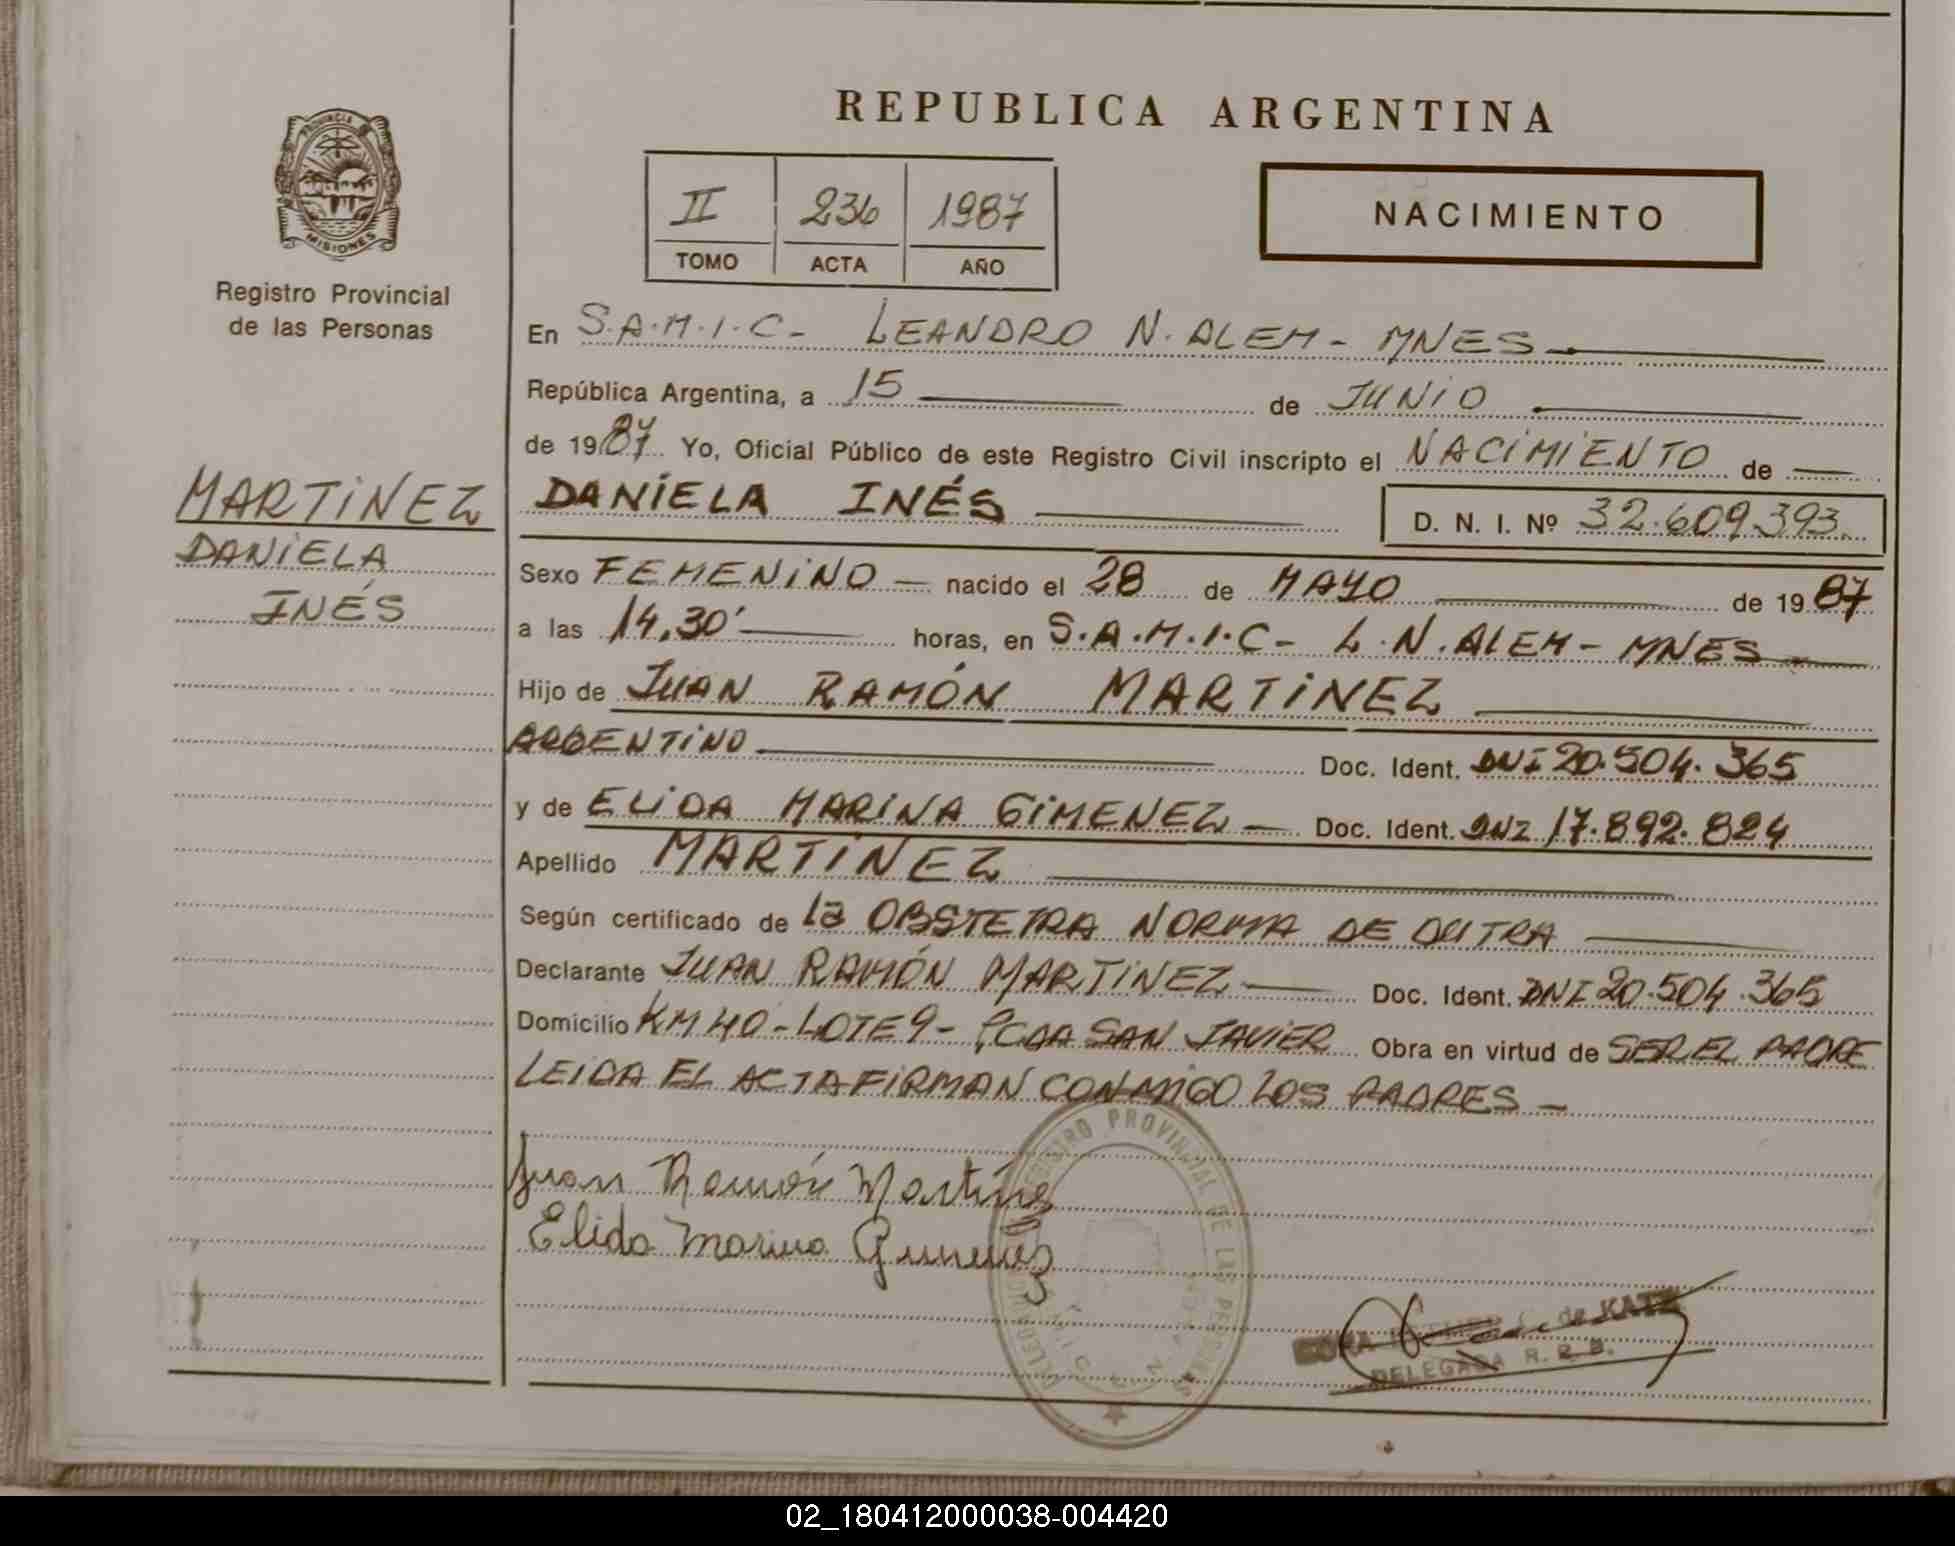 REPUBLICA ARGENTINA
PROVINCIA DE
MISIONES
Registro Provincial
de las Personas
II 236 1987
TOMO ACTA AÑO
NACIMIENTO
En S.A.M.I.C- LEANDRO N. ALEM - MNES
República Argentina, a 15 de JUNIO
de 1987 Yo, Oficial Público de este Registro Civil inscripto el NACIMIENTO de
MARTINEZ
DANIELA
INÉS
DANIELA INÉS D. N. I. Nº 32.609.393.
Sexo FEMENINO nacido el 28 de MAYO de 1987
a las 14,30' horas, en S.A.M.I.C- L.N.ALEM - MNES
Hijo de JUAN RAMÓN MARTINEZ
ARGENTINO Doc. Ident. DNI 20.504.365
y de ELIDA MARINA GIMENEZ Doc. Ident. DNI 17.892.824
Apellido MARTINEZ
Según certificado de la OBSTETRA NORMA DE DUTRA
Declarante JUAN RAMÓN MARTINEZ Doc. Ident. DNI 20.504.365
Domicilio KM 40 - LOTE 9 - PCDA SAN JAVIER Obra en virtud de SER EL PADRE
LEIDA EL ACTA FIRMAN CONMIGO LOS PADRES -
Juan Ramón Martinez
Elida Marina Gimenez
REGISTRO PROVINCIAL DE LAS PERSONAS
de KATZ
DELEGADA R. P. P.
02_180412000038-004420